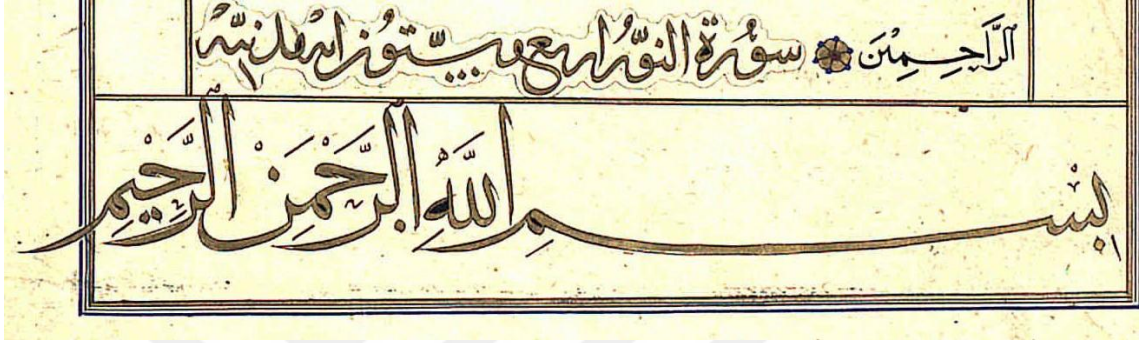 ٱلرَّاحِمِينَ سُورَةُ النُّورِ اربع وستون اية مدنية
بِسْمِ اللَّهِ الرَّحْمَنِ الرَّحِيمِ